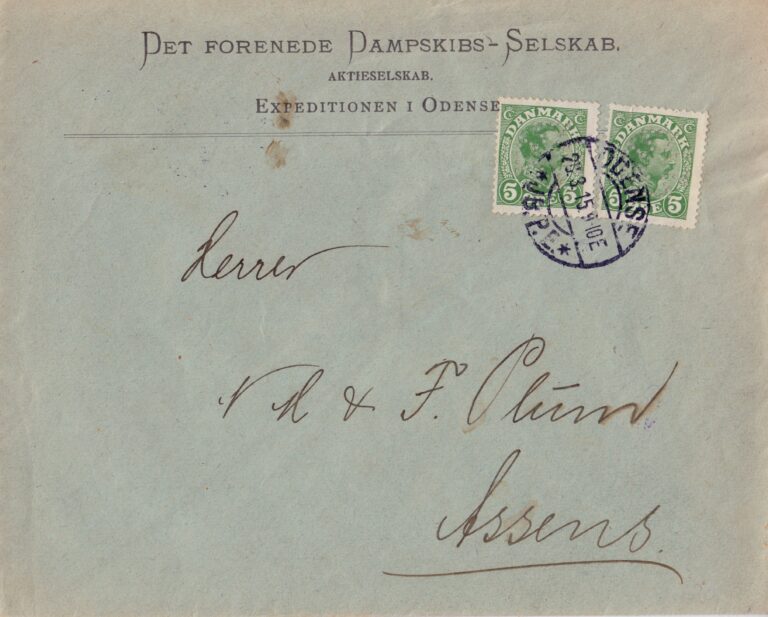 DET FORENEDE DAMPSKIBS-SELSKAB.
AKTIESELSKAB.
EXPEDITIONEN I ODENSE
DANMARK
5 5
DANMARK
5 5
ODENSE
9-10E
Herrer
N M & F. Plum
Assens.